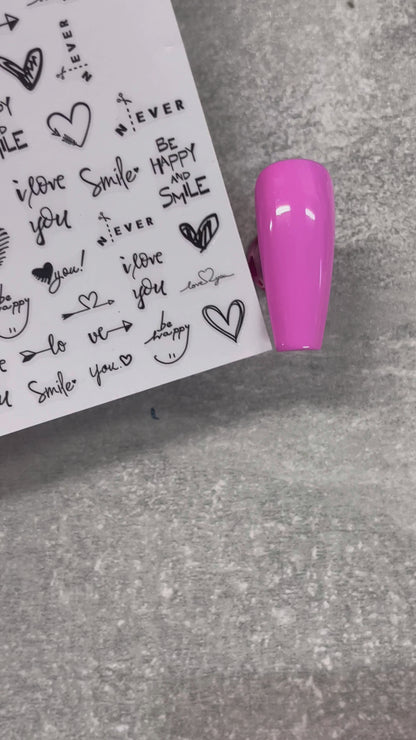 NEVER
NEVER
BE
HAPPY
AND
SMILE
i love
you
Smile
NEVER
i love
you
you!
love you
be
happy
lo ve
be happy
Smile
you.